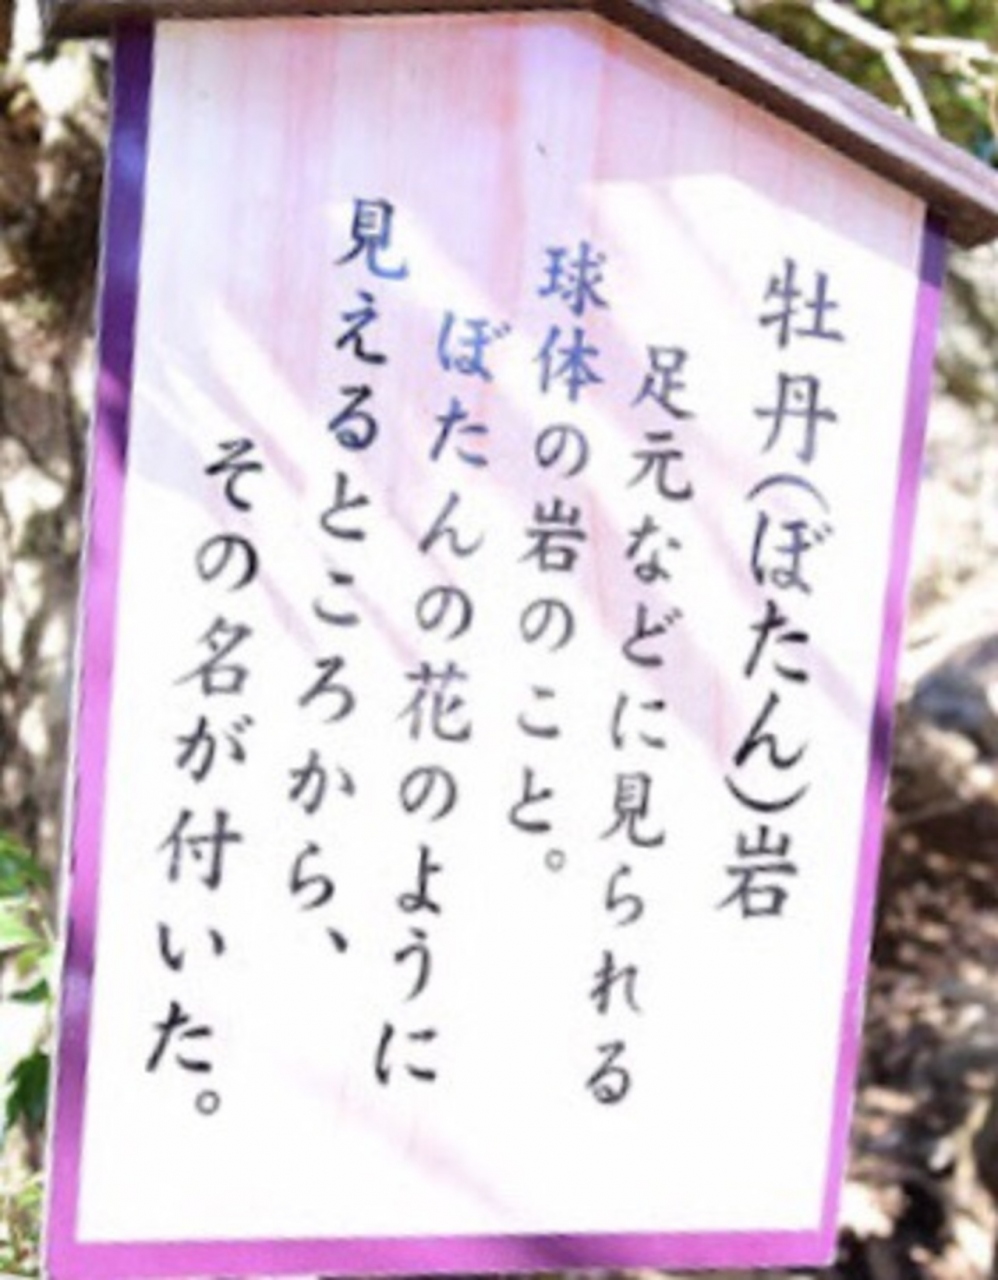 牡丹(ぼたん)岩
足元などに見られる
球体の岩のこと。
ぼたんの花のように
見えるところから、
その名が付いた。